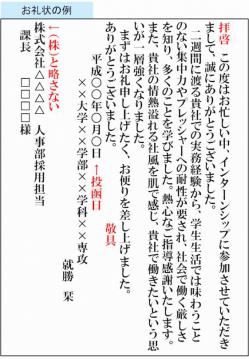 お礼状の例
拝啓 この度はお忙しい中、インターンシップに参加させていただき
まして、誠にありがとうございました。
二週間に渡る貴社での実務経験から、学生生活では味わうこと
のない集中力やプレッシャーへの耐性が要され、社会で働く厳しさ
を知り、多くのことを学びました。熱心なご指導感謝いたします。
また、貴社の情熱溢れる社風を肌で感じ、貴社で働きたいという思
いが一層強くなりました。
まずはお礼申し上げたく、お便りを差し上げました。
ありがとうございました。
敬具
平成○○年○月○日 ←投函日
××大学××学部××学科××専攻
就勝 栞
←(株)と略さない
株式会社△△△△ 人事部採用担当
課長 □□□□様